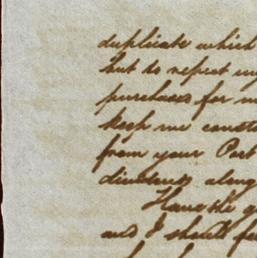 duplicate which
but to repeat my
purchases for m
keep me consta
from your Port
dividends along
Have the g
and I shall fe